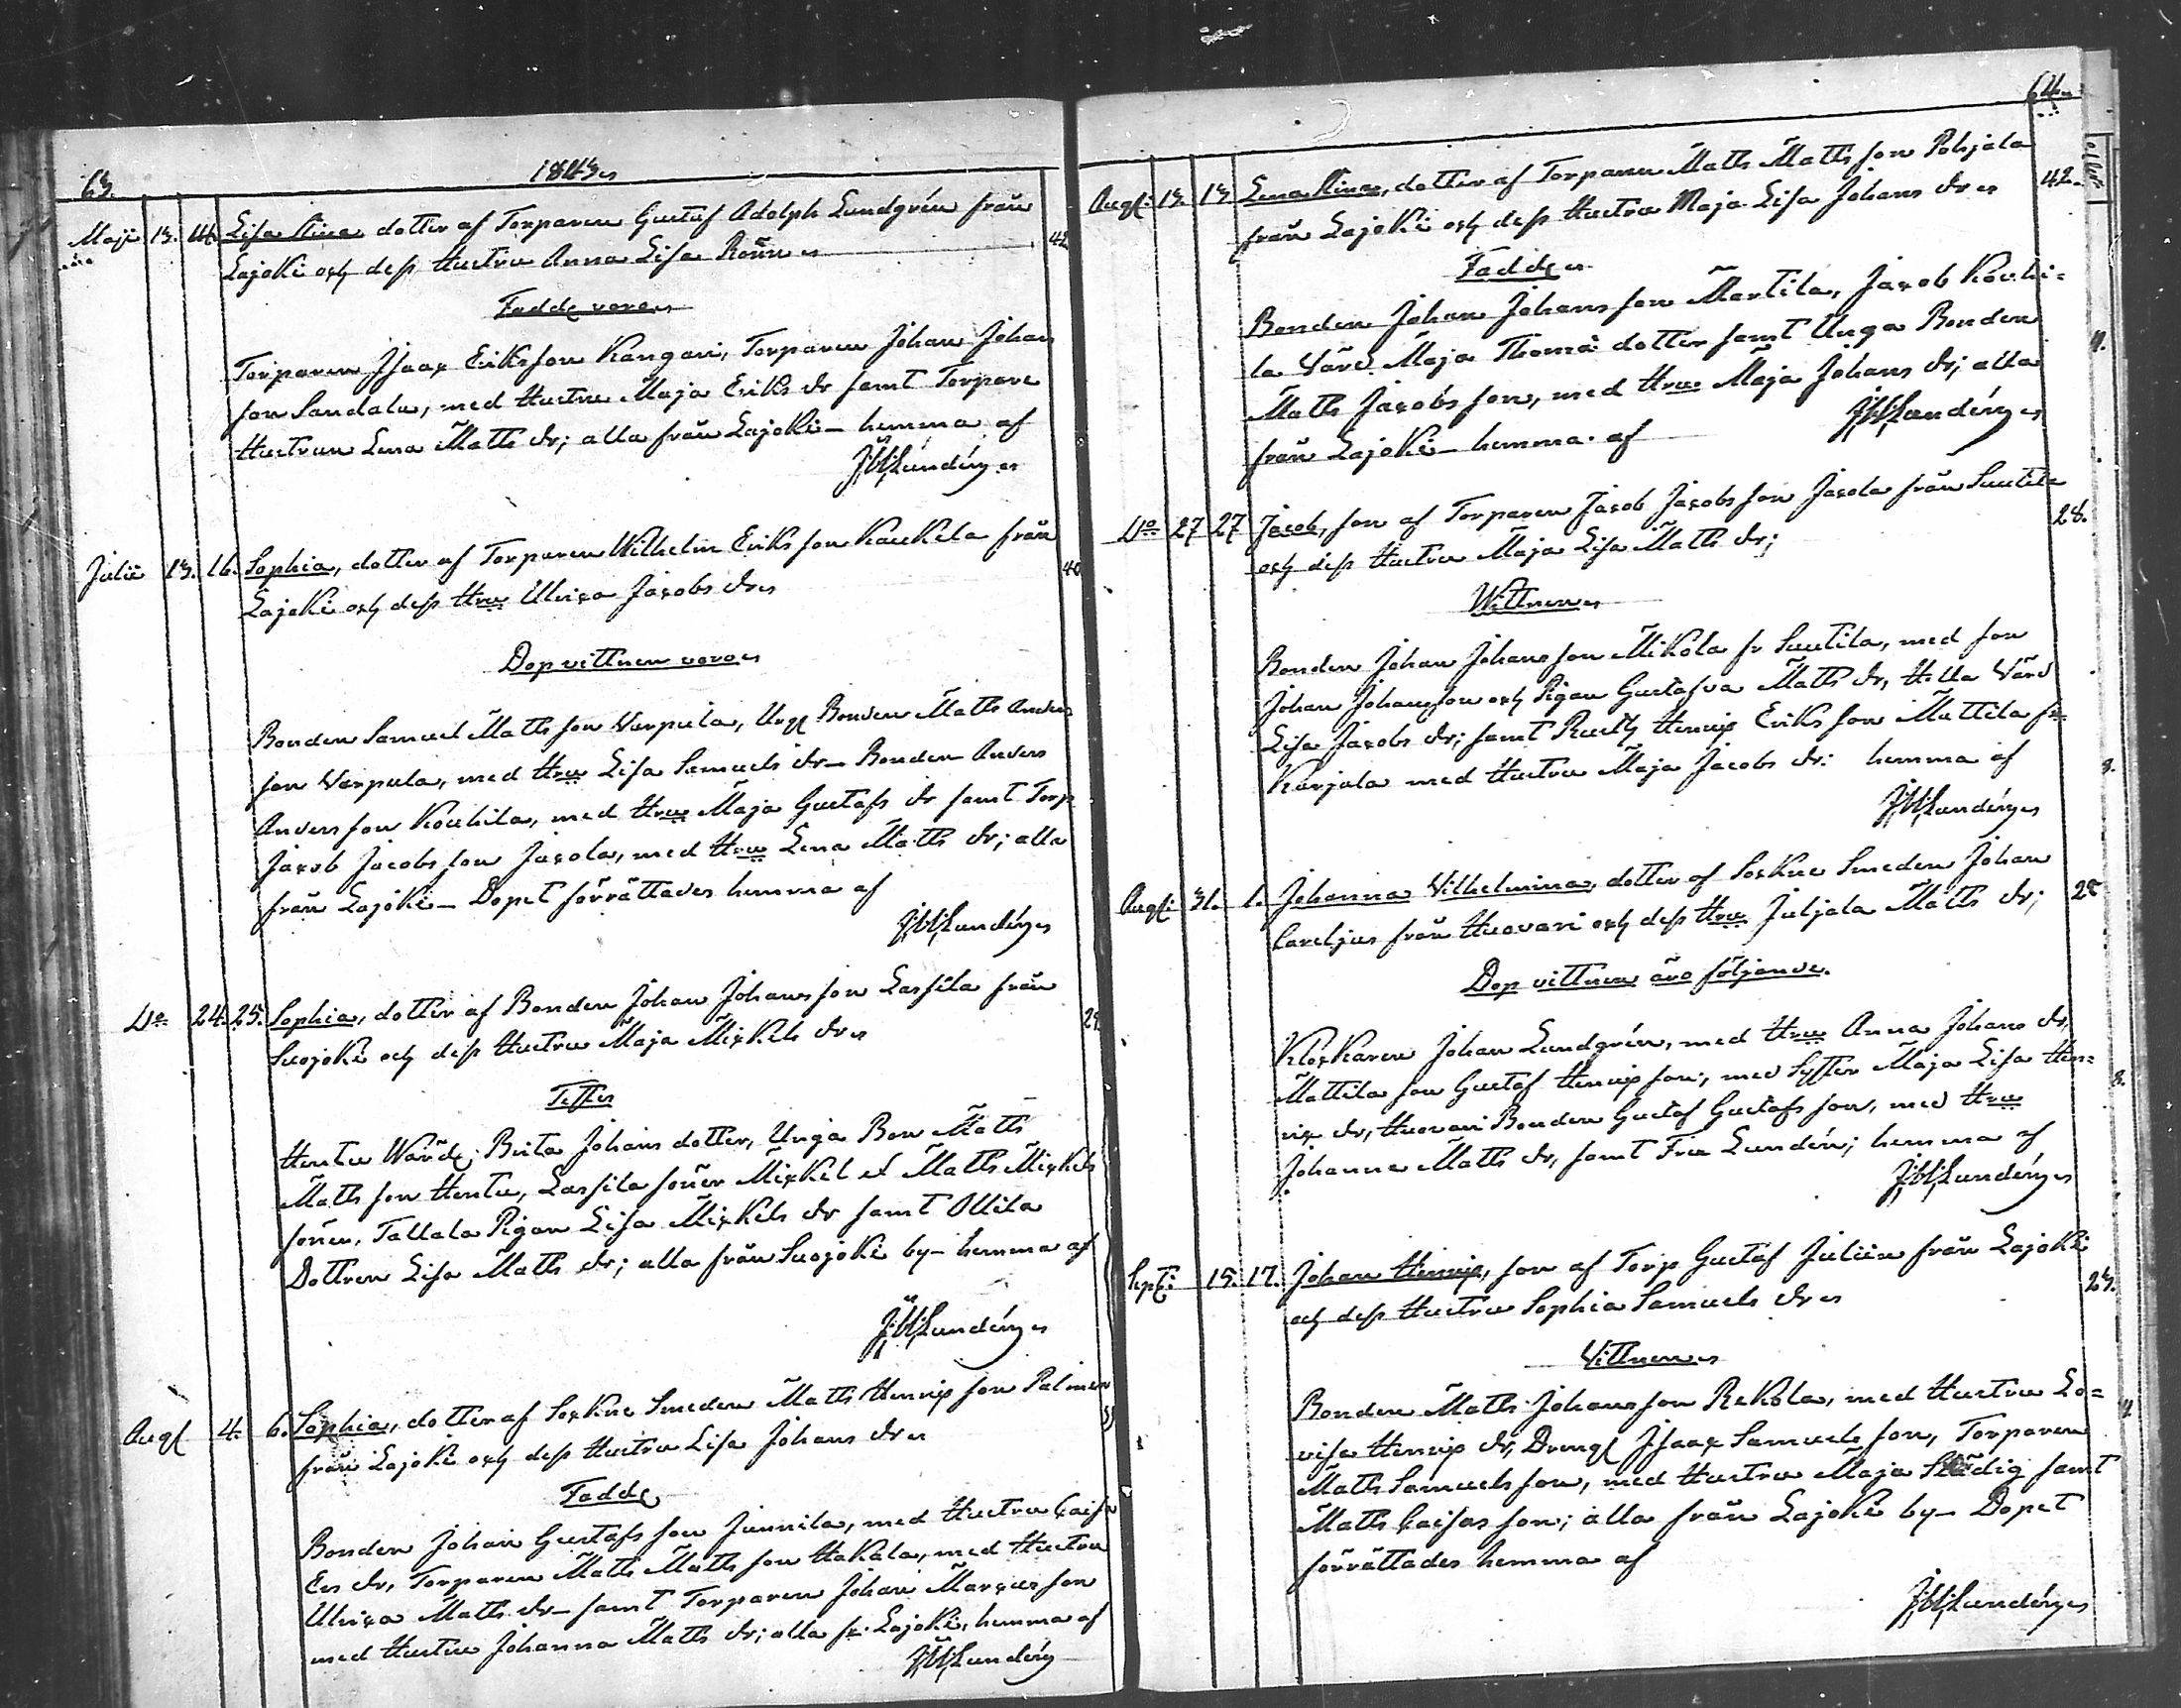 63.
1843
Maji 13. 14. Lisa Stina, dotter af Torparen Gustaf Adolph Lundgrén från 42
Lajoki och dess Hustru Anna Lisa
Fadd. voro
Torparen Isaac Eriksson Kangari, Torparen Johan Johan
son Sandala, med Hustru Maja Eriks dr samt Torpare
Hustrun Lena Matts dr; alla från Lajoki – hemma af
Lundén
Julii 13. 16. Sophia, dotter af Torparen Wilhelm Eriksson Kaukila från 40
Lajoki och dess Hru Ulrica Jacobs dr
Dopvittnen voro
Bonden Samuel Mattsson Varpula, Ung Bonden Matts Anders
son Varpula, med Hru Lisa Samuels dr – Bonden Anders
Andersson Kouhila, med Hru Maja Gustafs dr samt Torp
Jacob Jacobsson Jacola, med Hru Lena Matts dr; alla
från Lajoki – Dopet förrättades hemma af
Lundén
Do 24. 25. Sophia, dotter af Bonden Johan Johansson Lassila från 29
Suojoki och dess Hustru Maja Mickels dr
Testes
Hentu Värd. Brita Johans dotter, Unga Bon Matts
Matsson Hentu, Lassila söner Mickel et Matts Mickels
söner, Tallala Pigan Lisa Mickels dr samt Ollila
Dottren Lisa Matts dr; alla från Suojoki by – hemma af
Lundén
Aug 4. 6. Sophia, dotter af Sockne Smeden Matts Henricsson Palmen
från Lajoki och dess Hustru Lisa Johans dr
Fadd.
Bonden Johan Gustafsson Junnila, med Hustru Caisa
Es dr, Torparen Matts Mattsson Hakala, med Hustru
Ulrica Matts dr – samt Torparen Johan Marcusson
med Hustru Johanna Matts dr; alla fr. Lajoki, hemma af
Lundén
64.
Aug: 13 13 Lena Stina, dotter af Torparen Matts Mattsson Pohjala 42.
från Lajoki och dess Hustru Maja Lisa Johans dr
Fadd
Bonden Johan Johansson Martila, Jacob Kouhi=
la Värd. Maja Thomæ dotter samt Unga Bonden
Matts Jacobsson, med Hru Maja Johans dr; alla
från Lajoki – hemma af Lundén
Do 27 27 Jacob, son af Torparen Jacob Jacobsson Jacola från Suutila 28.
och dess Hustru Maja Lisa Matts dr;
Wittnen
Bonden Johan Johansson Mikola fr Suutila, med son
Johan Johansson och Pigan Gustafva Matts dr, Värd
Lisa Jacobs dr; samt Rusth Henric Eriksson Mattila fr
Karjala med Hustru Maja Jacobs dr: hemma af
Lundén
Aug: 31. 1. Johanna Vilhelmina, dotter af Sockne Smeden Johan
Careljus från Huovari och dess Hru Juljala Matts dr;
Dop vittnen äro följande.
Klockaren Johan Lundgrén, med Hru Anna Johans dr,
Mattila son Gustaf Henricsson, med Syster Maja Lisa Hen=
ric dr, Huovari Bonden Gustaf Gustafsson, med Hru
Johanna Matts dr, samt Fru Lundén; hemma af
Lundén
Sept: 15. 17. Johan Henric, son af Torp Gustaf Julin från Lajoki 23.
och dess Hustru Sophia Samuels dr
Vittnen
Bonden Matts Johansson Rekola, med Hustru Lo=
visa Henrics dr, Dreng Isaac Samuelsson, Torparen
Matts Samuelsson, med Hustru Maja Städig samt
Matts Caisasson; alla från Lajoki by – Dopet
förrättades hemma af
Lundén